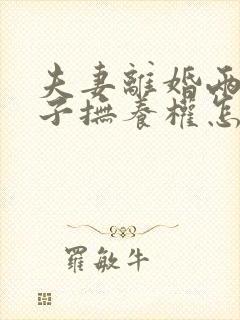 夫妻離婚兩
子撫養權怎
羅敏牛